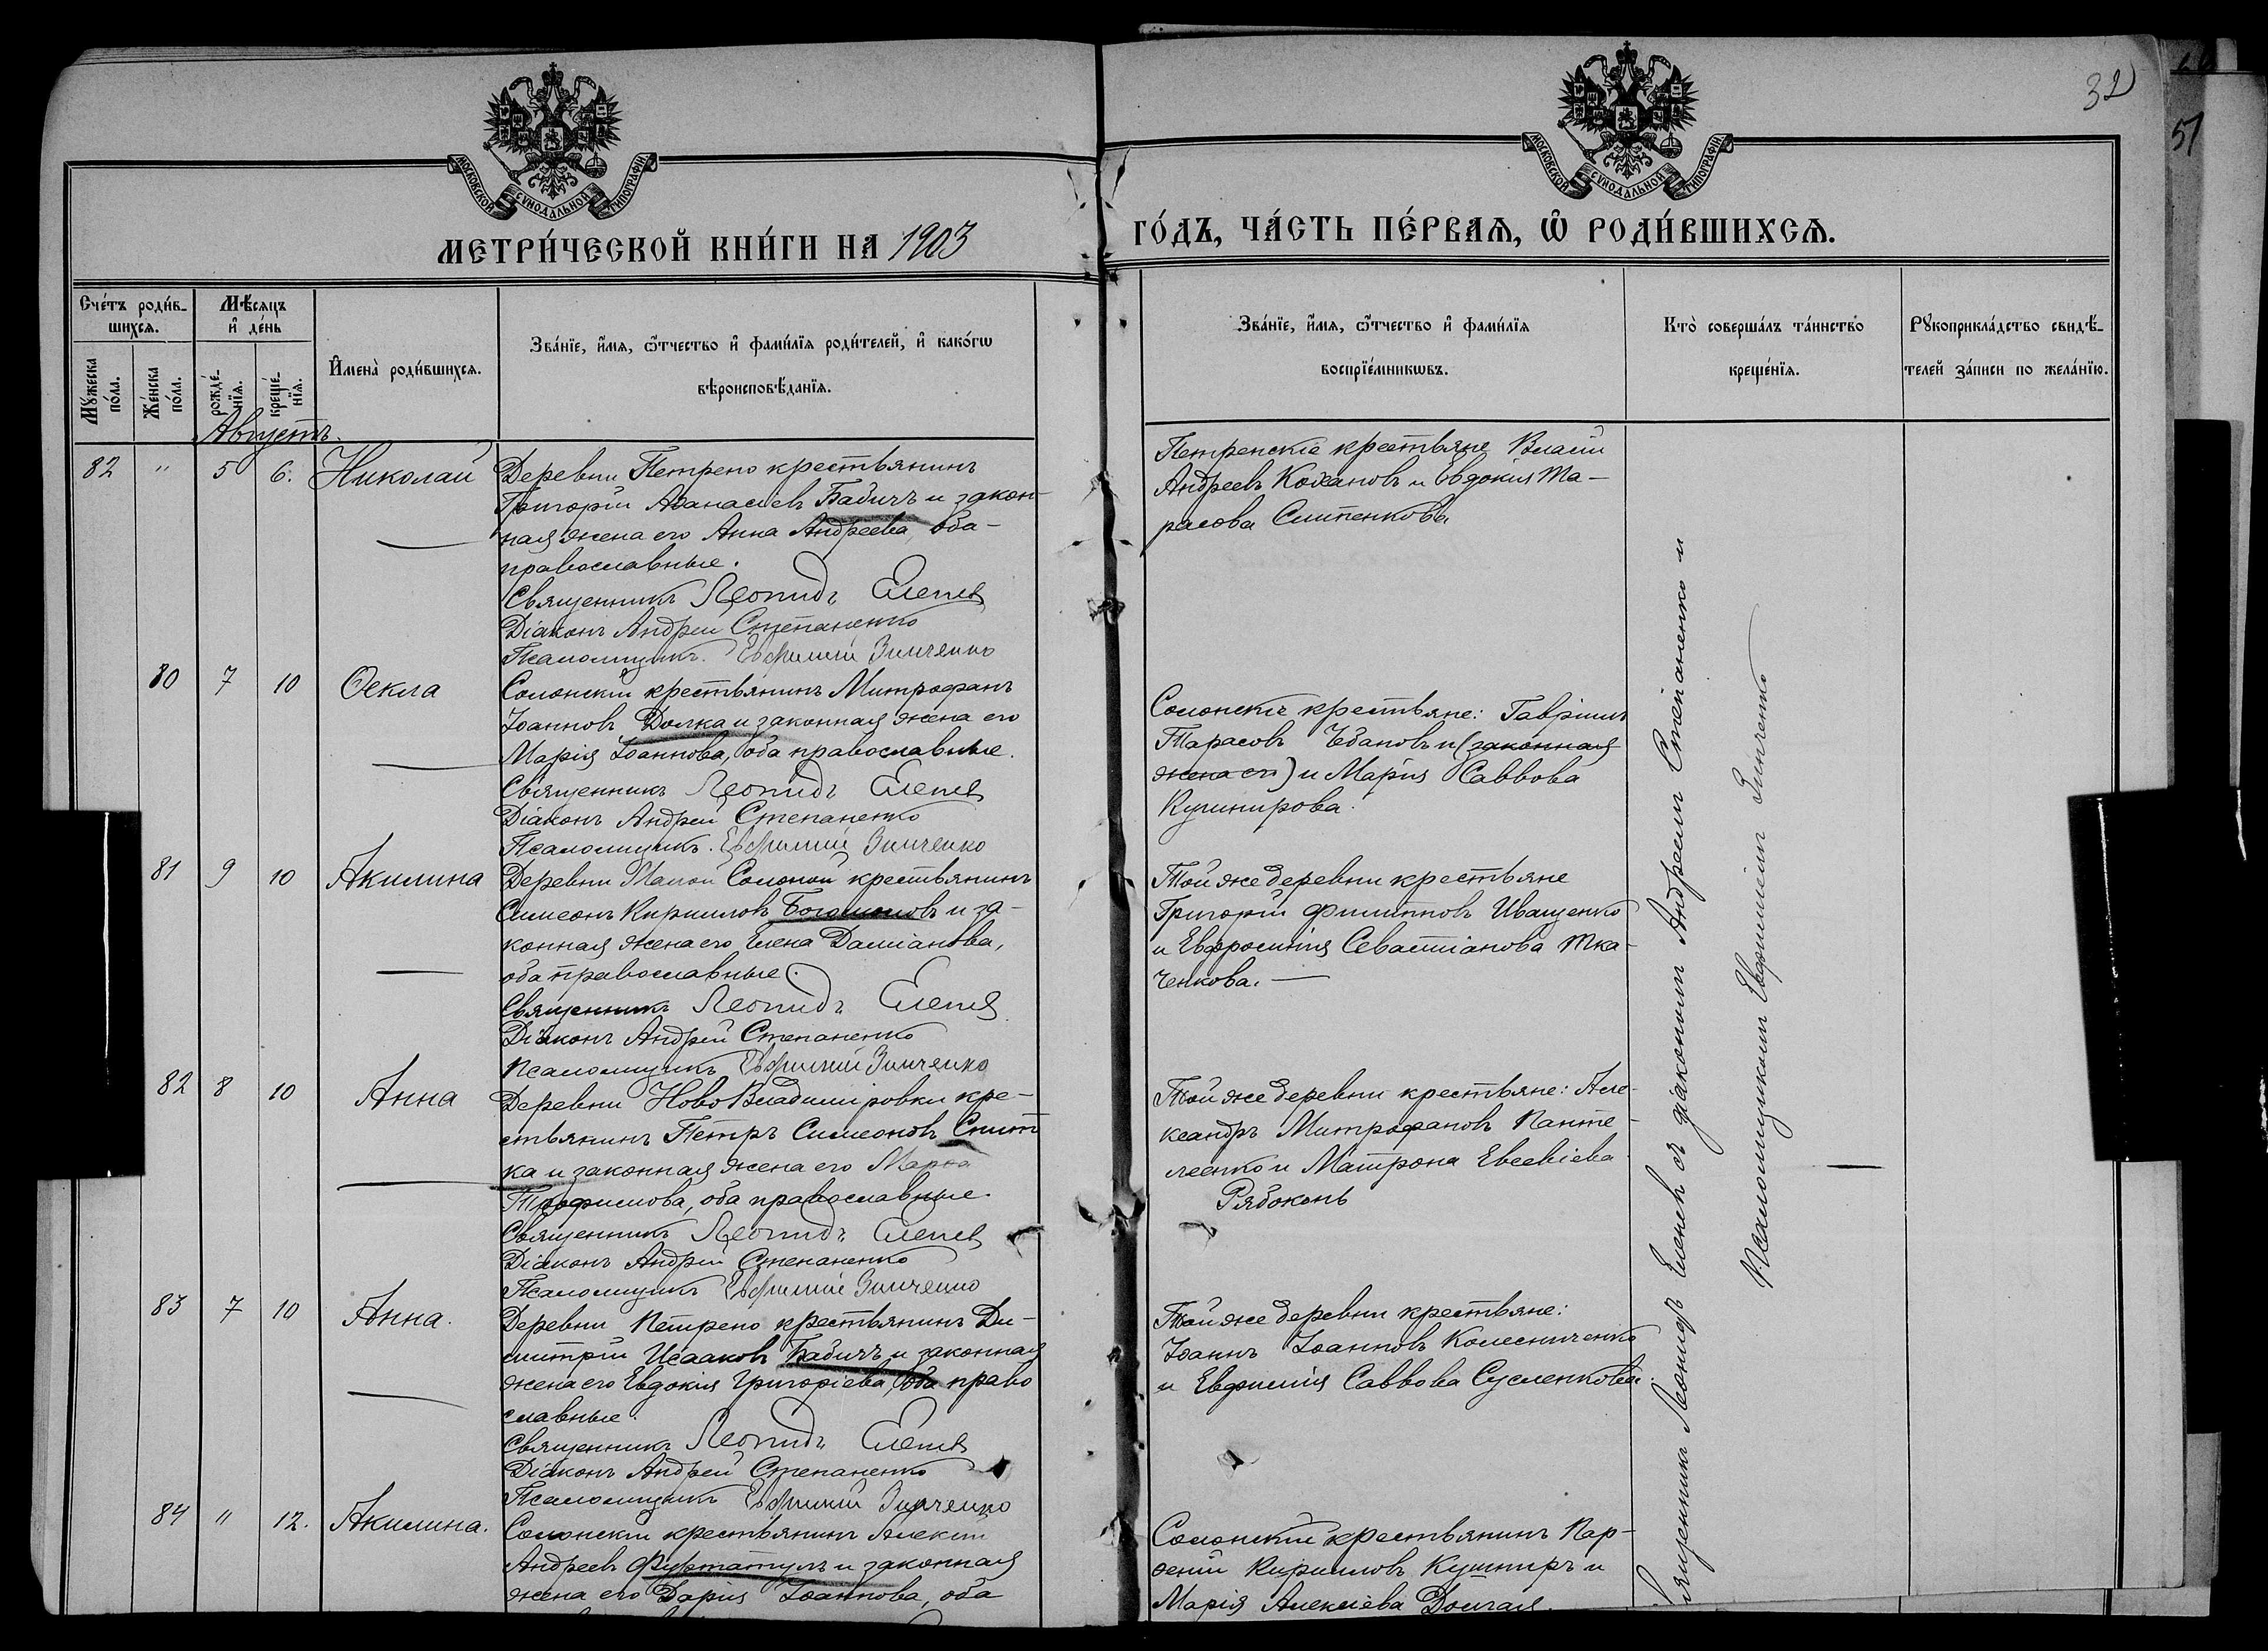 32
51
МОСКОВСКОЙ СУНОДАЛЬНОЙ ТИПОГРАФІИ
МОСКОВСКОЙ СУНОДАЛЬНОЙ ТИПОГРАФІИ
МЕТРИ́ЧЕСКОЙ КНИ́ГИ НА 1903
ГО́ДЪ, ЧА́СТЬ ПЕ́РВАѦ, Ѡ҆ РОДИ́ВШИХСѦ.
Сче́тъ роди́в-
шихсѧ.
Мꙋ́жеска по́ла.
Же́нска по́ла.
Мѣ́сѧцъ
и҆ де́нь
рожде́-
нїѧ.
креще́-
нїѧ.
И҆мена̀ роди́вшихсѧ.
Зва́нїе, и҆́мѧ, ѻ҆́тчество и҆ фами́лїѧ роди́телей, и҆ како́гѡ
вѣроисповѣ́данїѧ.
Зва́нїе, и҆́мѧ, ѻ҆́тчество и҆ фами́лїѧ
воспрїе́мникѡвъ.
Кто̀ соверша́лъ та́инство
креще́нїѧ.
Рꙋкоприкла́дство свидѣ́-
телей за́писи по жела́нїю.
Августъ.
82 " 5 6. Николай
Деревни Петрено крестьянинъ
Григорій Аѳанасіевъ Бабичъ и закон-
ная жена его Анна Андреева, оба-
православные.
Священникъ Леонидъ Еленевъ
Діаконъ Андрей Степаненко
Псаломщикъ. Евфимій Зинченко
Петренскіе крестьяне Власій
Андреевъ Кохановъ и Евдокія Та-
расова Слипенкова
80 7 10 Ѳекла
Солонскій крестьянинъ Митрофанъ
Іоанновъ Долка и законная жена его
Марія Іоаннова, оба православные.
Священникъ Леонидъ Еленевъ
Діаконъ Андрей Степаненко
Псаломщикъ. Евфимій Зинченко
Солонскіе крестьяне: Гавріилъ
Тарасовъ Чбановъ и (законная
жена его) и Марія Саввова
Кушнирова.
81 9 10 Акилина
Деревни Малой Солоной крестьянинъ
Симеонъ Кирилловъ Богомоловъ и за-
конная жена его Елена Даміанова,
оба православные.
Священникъ Леонидъ Еленевъ
Діаконъ Андрей Степаненко
Псаломщикъ Евфимій Зинченко
Той же деревни крестьяне
Григорій Филипповъ Иващенко
и Евфросинія Севастіанова Тка-
ченкова.
82 8 10 Анна
Деревни НовоВладиміровки кре-
стьянинъ Петръ Симеоновъ Снит
ка и законная жена его Марѳа
Трофимова, оба православные.
Священникъ Леонидъ Еленевъ
Діаконъ Андрей Степаненко
Псаломщикъ Евфимій Зинченко
Той же деревни крестьяне: Але-
ксандръ Митрофановъ Панте-
леенко и Матрона Евсевіева
Рябоконь
83 7 10 Анна.
Деревни Петрено крестьянинъ Ди-
митрій Исааковъ Бабичъ и законная
жена его Евдокія Григоріева, оба право
славные.
Священникъ Леонидъ Еленевъ
Діаконъ Андрей Степаненко
Псаломщикъ Евфимій Зинченко
Той же деревни крестьяне:
Іоаннъ Іоанновъ Колесниченко
и Евфимія Саввова Сусленкова.
84 " 12. Акилина.
Солонскій крестьянинъ Алексій
Андреевъ Фуртатулъ и законная
жена его Дарія Іоаннова, оба
Солонскій крестьянинъ Пар-
ѳеній Кирилловъ Кушниръ и
Марія Алексіева Долгая.
Священникъ Леонидъ Еленевъ съ діакономъ Андреемъ Степаненко и
Псаломщикомъ Евфиміемъ Зинченко